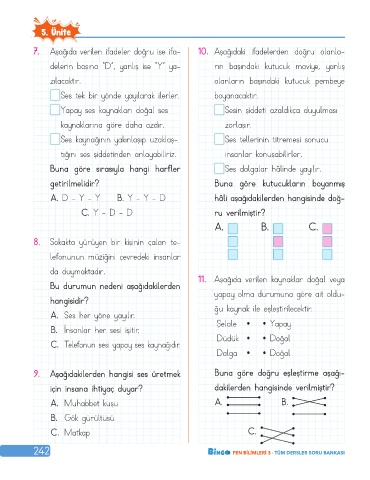 5. Ünite
7. Aşağıda verilen ifadeler doğru ise ifa-
delerin başına "D", yanlış ise "Y" ya-
zılacaktır.
Ses tek bir yönde yayılarak ilerler.
Yapay ses kaynakları doğal ses
kaynaklarına göre daha azdır.
Ses kaynağının yakınlaşıp uzaklaş-
tığını ses şiddetinden anlayabiliriz.
Buna göre sırasıyla hangi harfler
getirilmelidir?
A. D - Y - Y B. Y - Y - D
C. Y - D - D
8. Sokakta yürüyen bir kişinin çalan te-
lefonunun müziğini çevredeki insanlar
da duymaktadır.
Bu durumun nedeni aşağıdakilerden
hangisidir?
A. Ses her yöne yayılır.
B. İnsanlar her sesi işitir.
C. Telefonun sesi yapay ses kaynağıdır.
9. Aşağıdakilerden hangisi ses üretmek
için insana ihtiyaç duyar?
A. Muhabbet kuşu
B. Gök gürültüsü
C. Matkap
10. Aşağıdaki ifadelerden doğru olanla-
rın başındaki kutucuk maviye, yanlış
olanların başındaki kutucuk pembeye
boyanacaktır.
Sesin şiddeti azaldıkça duyulması
zorlaşır.
Ses tellerinin titremesi sonucu
insanlar konuşabilirler.
Ses dalgalar hâlinde yayılır.
Buna göre kutucukların boyanmış
hâli aşağıdakilerden hangisinde doğ-
ru verilmiştir?
A. B. C.
11. Aşağıda verilen kaynaklar doğal veya
yapay olma durumuna göre ait oldu-
ğu kaynak ile eşleştirilecektir.
Şelale • • Yapay
Düdük • • Doğal
Dalga • • Doğal
Buna göre doğru eşleştirme aşağı-
dakilerden hangisinde verilmiştir?
A. B.
C.
242
BİNGO FEN BİLİMLERİ 3 - TÜM DERSLER SORU BANKASI